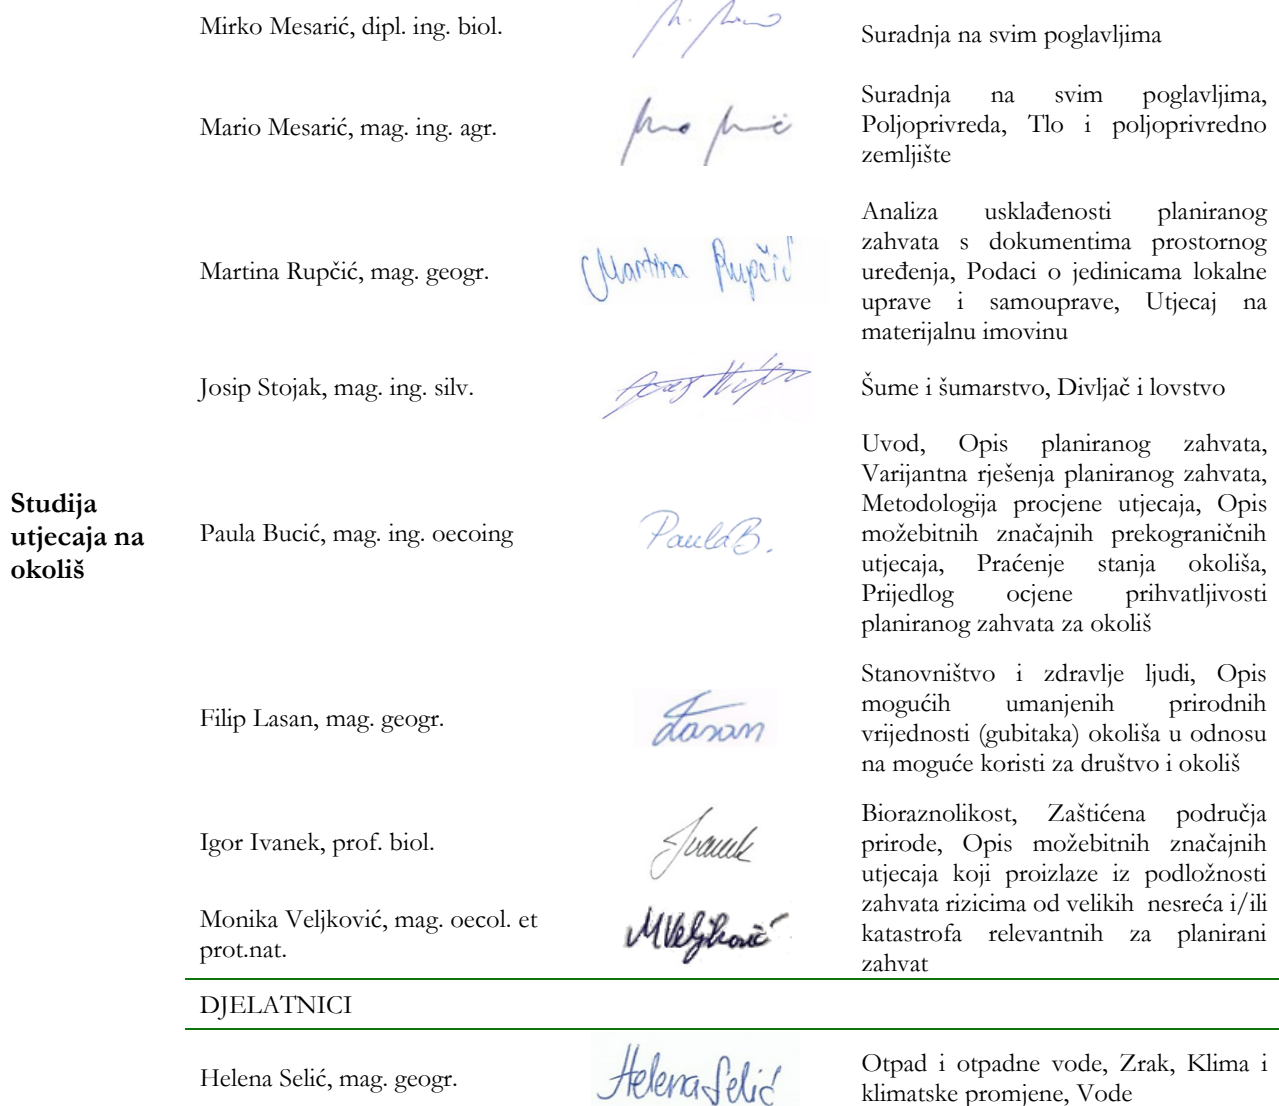 Mirko Mesarić, dipl. ing. biol.
Suradnja na svim poglavljima
Mario Mesarić, mag. ing. agr.
Suradnja na svim poglavljima,
Poljoprivreda, Tlo i poljoprivredno
zemljište
Martina Rupčić, mag. geogr.
Martina Rupčić
Analiza usklađenosti planiranog
zahvata s dokumentima prostornog
uređenja, Podaci o jedinicama lokalne
uprave i samouprave, Utjecaj na
materijalnu imovinu
Josip Stojak, mag. ing. silv.
Šume i šumarstvo, Divljač i lovstvo
Studija
utjecaja na
okoliš
Paula Bucić, mag. ing. oecoing
PaulaB.
Uvod, Opis planiranog zahvata,
Varijantna rješenja planiranog zahvata,
Metodologija procjene utjecaja, Opis
možebitnih značajnih prekograničnih
utjecaja, Praćenje stanja okoliša,
Prijedlog ocjene prihvatljivosti
planiranog zahvata za okoliš
Filip Lasan, mag. geogr.
Lasan
Stanovništvo i zdravlje ljudi, Opis
mogućih umanjenih prirodnih
vrijednosti (gubitaka) okoliša u odnosu
na moguće koristi za društvo i okoliš
Igor Ivanek, prof. biol.
Ivanek
Monika Veljković, mag. oecol. et
prot.nat.
MVeljković
Bioraznolikost, Zaštićena područja
prirode, Opis možebitnih značajnih
utjecaja koji proizlaze iz podložnosti
zahvata rizicima od velikih nesreća i/ili
katastrofa relevantnih za planirani
zahvat
DJELATNICI
Helena Selić, mag. geogr.
Helena Selić
Otpad i otpadne vode, Zrak, Klima i
klimatske promjene, Vode